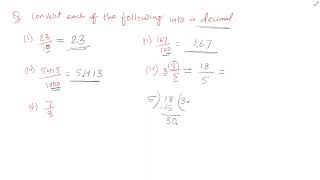 Q Convert each of the following into a decimal
(i) 23/10 = 2.3 (ii) 167/100 = 1.67
(iii) 5413/1000 = 5.413 (iv) 3 3/5 = 18/5 =
(v) 7/8 5)18(3.
-15
30